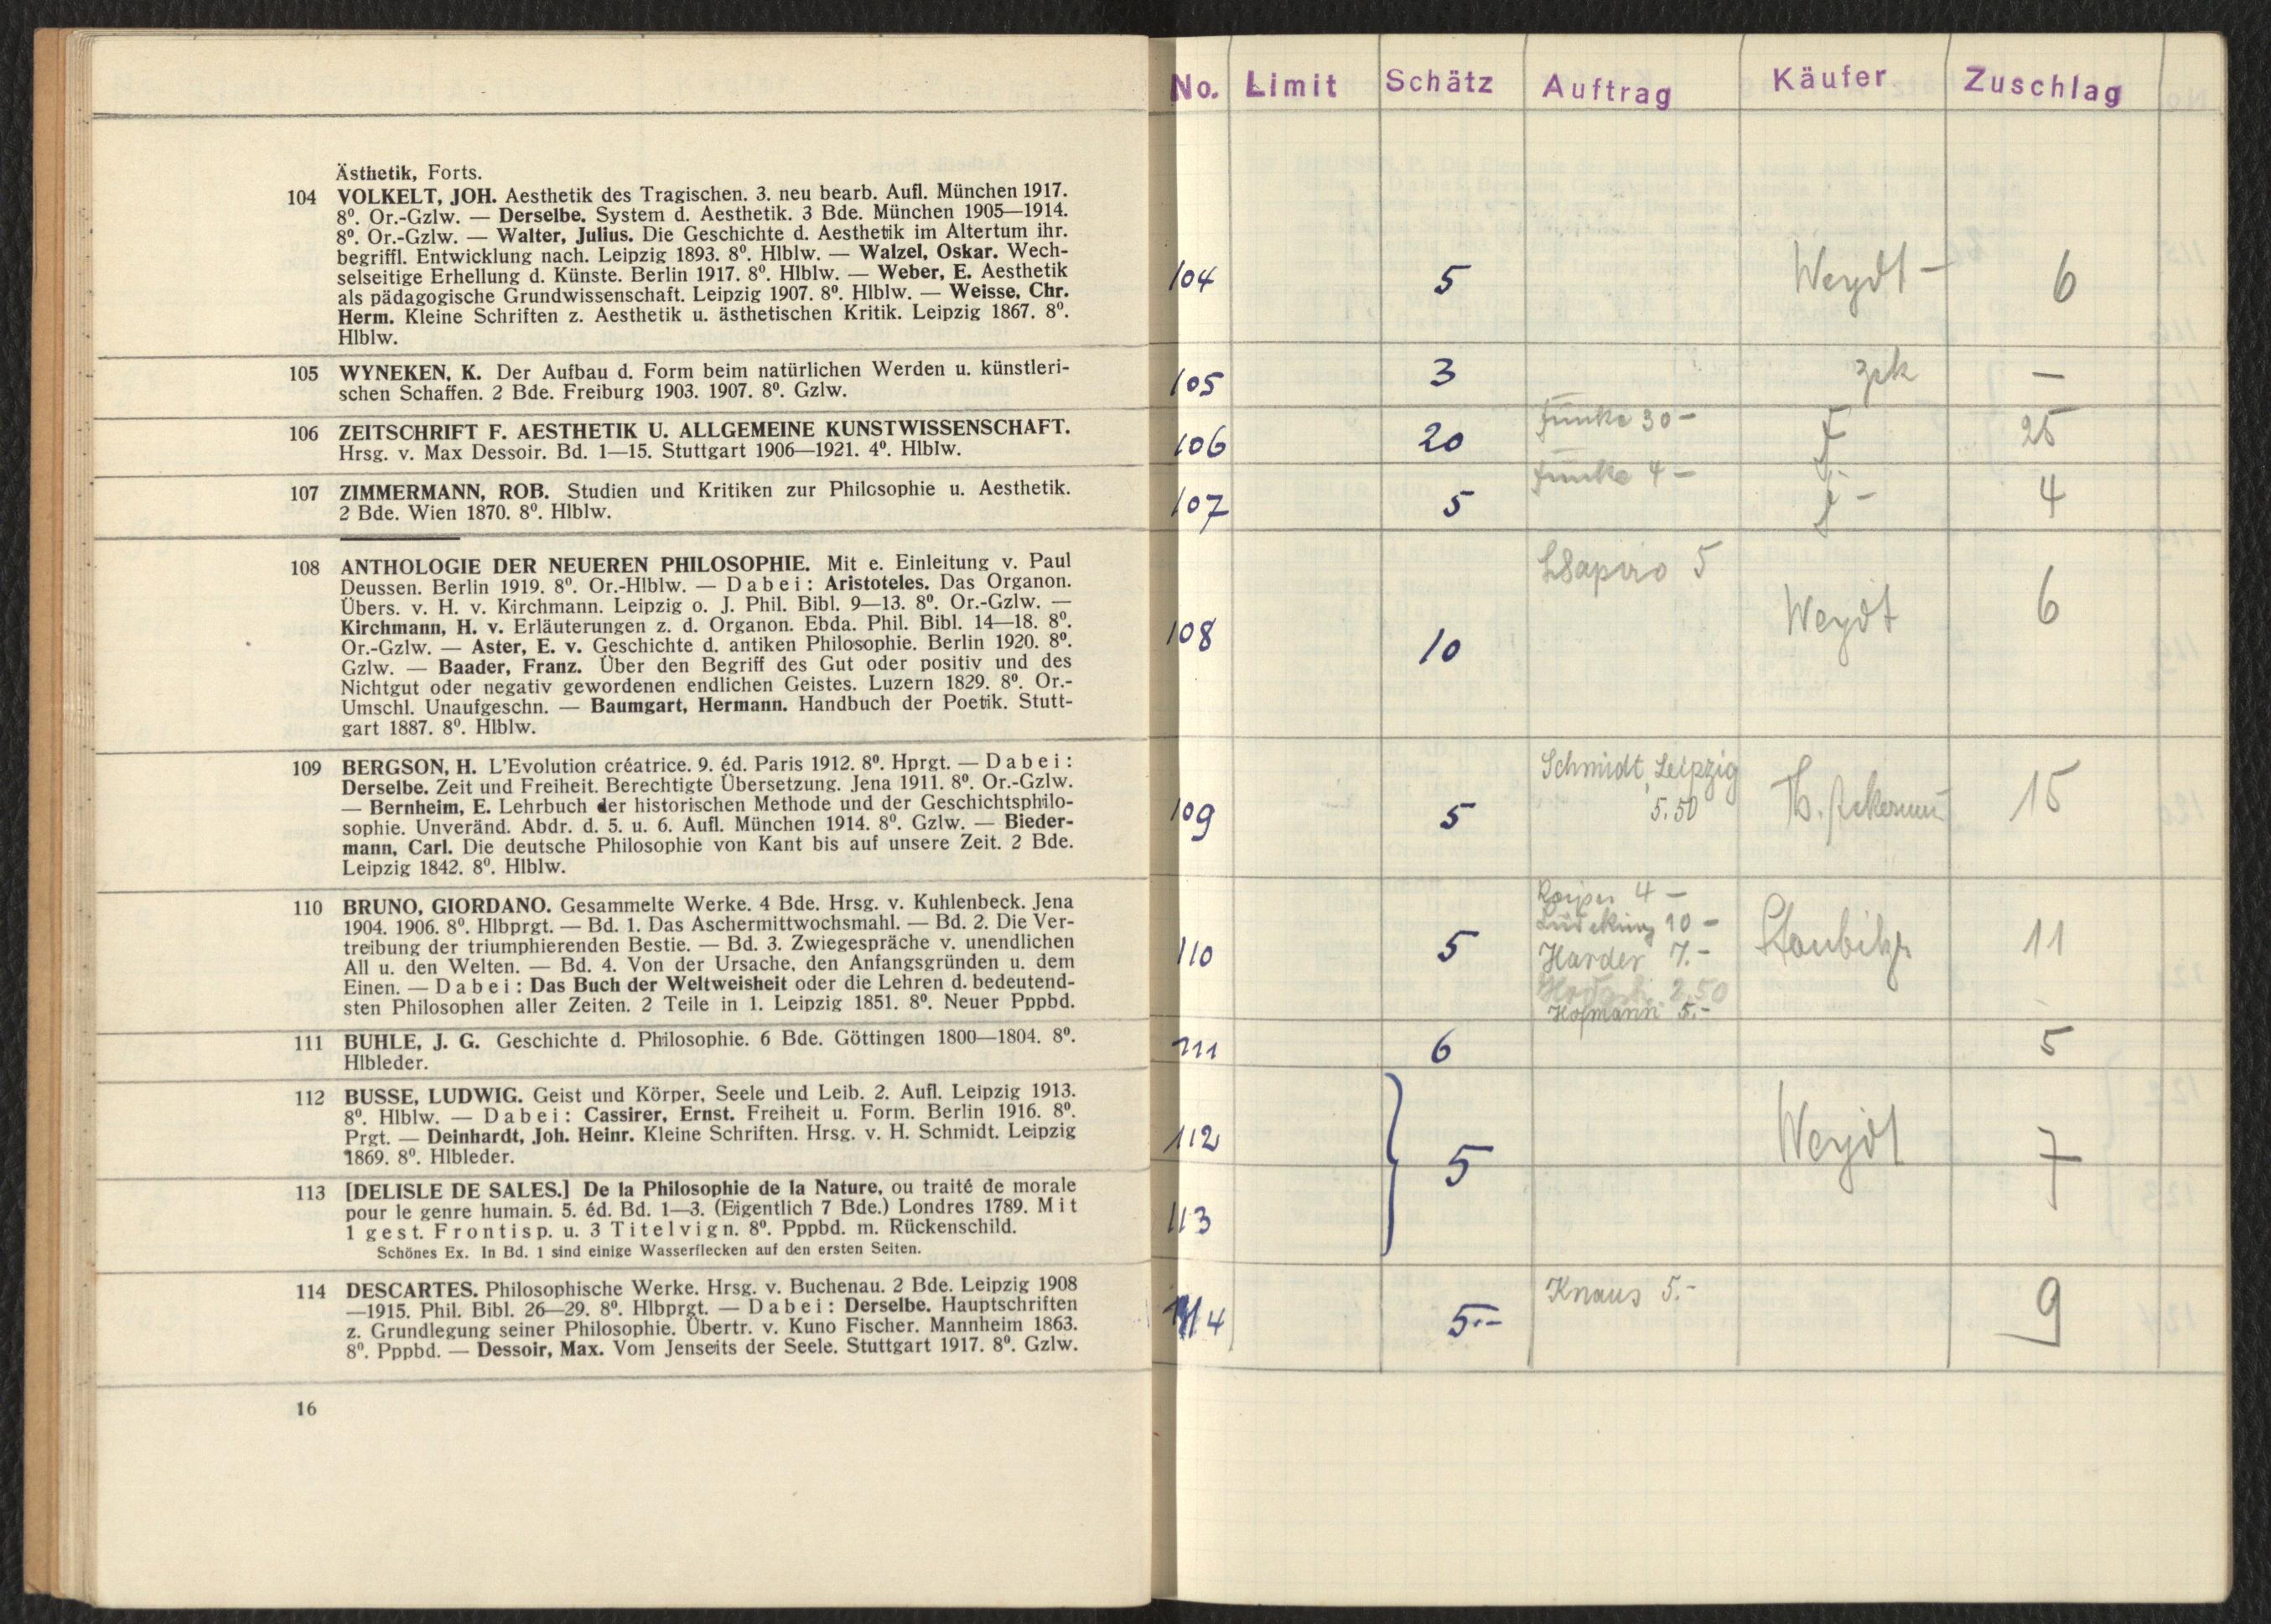 Ästhetik, Forts.
104 VOLKELT, JOH. Aesthetik des Tragischen. 3. neu bearb. Aufl. München 1917.
8⁰. Or.-Gzlw. — Derselbe. System d. Aesthetik. 3 Bde. München 1905—1914.
8⁰. Or.-Gzlw. — Walter, Julius. Die Geschichte d. Aesthetik im Altertum ihr.
begriffl. Entwicklung nach. Leipzig 1893. 8⁰. Hlblw. — Walzel, Oskar. Wech-
selseitige Erhellung d. Künste. Berlin 1917. 8⁰. Hlblw. — Weber, E. Aesthetik
als pädagogische Grundwissenschaft. Leipzig 1907. 8⁰. Hlblw. — Weisse, Chr.
Herm. Kleine Schriften z. Aesthetik u. ästhetischen Kritik. Leipzig 1867. 8⁰.
Hlblw.
105 WYNEKEN, K. Der Aufbau d. Form beim natürlichen Werden u. künstleri-
schen Schaffen. 2 Bde. Freiburg 1903. 1907. 8⁰. Gzlw.
106 ZEITSCHRIFT F. AESTHETIK U. ALLGEMEINE KUNSTWISSENSCHAFT.
Hrsg. v. Max Dessoir. Bd. 1—15. Stuttgart 1906—1921. 4⁰. Hlblw.
107 ZIMMERMANN, ROB. Studien und Kritiken zur Philosophie u. Aesthetik.
2 Bde. Wien 1870. 8⁰. Hlblw.
108 ANTHOLOGIE DER NEUEREN PHILOSOPHIE. Mit e. Einleitung v. Paul
Deussen. Berlin 1919. 8⁰. Or.-Hlblw. — Dabei: Aristoteles. Das Organon.
Übers. v. H. v. Kirchmann. Leipzig o. J. Phil. Bibl. 9—13. 8⁰. Or.-Gzlw. —
Kirchmann, H. v. Erläuterungen z. d. Organon. Ebda. Phil. Bibl. 14—18. 8⁰.
Or.-Gzlw. — Aster, E. v. Geschichte d. antiken Philosophie. Berlin 1920. 8⁰.
Gzlw. — Baader, Franz. Über den Begriff des Gut oder positiv und des
Nichtgut oder negativ gewordenen endlichen Geistes. Luzern 1829. 8⁰. Or.-
Umschl. Unaufgeschn. — Baumgart, Hermann. Handbuch der Poetik. Stutt-
gart 1887. 8⁰. Hlblw.
109 BERGSON, H. L'Evolution créatrice. 9. éd. Paris 1912. 8⁰. Hprgt. — Dabei:
Derselbe. Zeit und Freiheit. Berechtigte Übersetzung. Jena 1911. 8⁰. Or.-Gzlw.
— Bernheim, E. Lehrbuch der historischen Methode und der Geschichtsphilo-
sophie. Unveränd. Abdr. d. 5. u. 6. Aufl. München 1914. 8⁰. Gzlw. — Bieder-
mann, Carl. Die deutsche Philosophie von Kant bis auf unsere Zeit. 2 Bde.
Leipzig 1842. 8⁰. Hlblw.
110 BRUNO, GIORDANO. Gesammelte Werke. 4 Bde. Hrsg. v. Kuhlenbeck. Jena
1904. 1906. 8⁰. Hlbprgt. — Bd. 1. Das Aschermittwochsmahl. — Bd. 2. Die Ver-
treibung der triumphierenden Bestie. — Bd. 3. Zwiegespräche v. unendlichen
All u. den Welten. — Bd. 4. Von der Ursache, den Anfangsgründen u. dem
Einen. — Dabei: Das Buch der Weltweisheit oder die Lehren d. bedeutend-
sten Philosophen aller Zeiten. 2 Teile in 1. Leipzig 1851. 8⁰. Neuer Pppbd.
111 BUHLE, J. G. Geschichte d. Philosophie. 6 Bde. Göttingen 1800—1804. 8⁰.
Hlbleder.
112 BUSSE, LUDWIG. Geist und Körper, Seele und Leib. 2. Aufl. Leipzig 1913.
8⁰. Hlblw. — Dabei: Cassirer, Ernst. Freiheit u. Form. Berlin 1916. 8⁰.
Prgt. — Deinhardt, Joh. Heinr. Kleine Schriften. Hrsg. v. H. Schmidt. Leipzig
1869. 8⁰. Hlbleder.
113 [DELISLE DE SALES.] De la Philosophie de la Nature, ou traité de morale
pour le genre humain. 5. éd. Bd. 1—3. (Eigentlich 7 Bde.) Londres 1789. Mit
1 gest. Frontisp. u. 3 Titelvign. 8⁰. Pppbd. m. Rückenschild.
Schönes Ex. In Bd. 1 sind einige Wasserflecken auf den ersten Seiten.
114 DESCARTES. Philosophische Werke. Hrsg. v. Buchenau. 2 Bde. Leipzig 1908
—1915. Phil. Bibl. 26—29. 8⁰. Hlbprgt. — Dabei: Derselbe. Hauptschriften
z. Grundlegung seiner Philosophie. Übertr. v. Kuno Fischer. Mannheim 1863.
8⁰. Pppbd. — Dessoir, Max. Vom Jenseits der Seele. Stuttgart 1917. 8⁰. Gzlw.
16
No. Limit Schätz Auftrag Käufer Zuschlag
104 5 Weydt – 6
105 3 zrk —
Funke 30 –
106 20 F 25
Funke 4 –
107 5 F – 4
5
108 10 Weydt 6
Schmidt, Leipzig
109 5 5.50 Th. Ackermann 15
4 –
Lüdeking 10 –
110 5 Harder 7.– 11
2.50
Hofmann 5.–
111 6 5
112 5 Weydt 7
113
Knaus 5.–
114 5.– 9